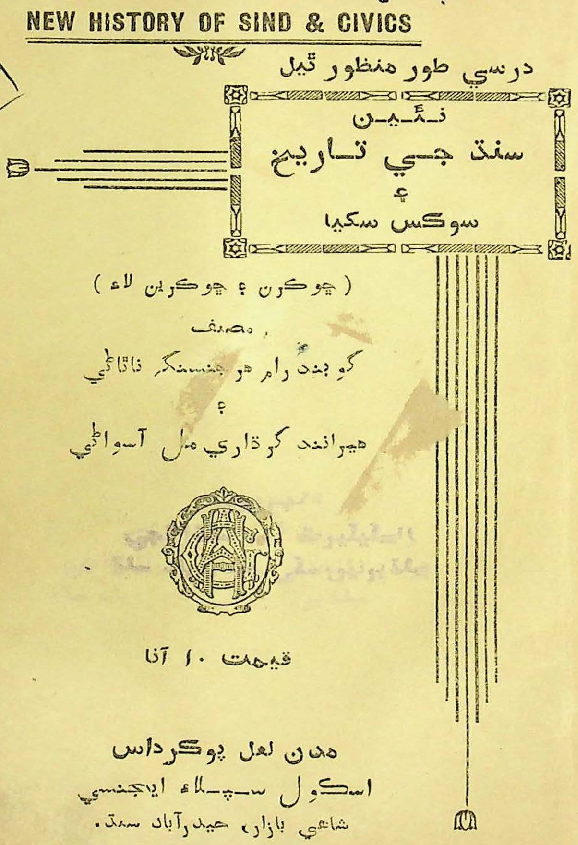 NEW HISTORY OF SIND & CIVICS
درسي طور منظور ٿيل
نـئـيـن
سنڌ جـي تـاريخ
۽
سوڪس سکيا
( ڇوڪرن ۽ ڇوڪرين لاءِ )
مصنف
گوبند رام هرجنسنگهه ناٿاڻي
۽
هيرانند گرڌاري مل آسواڻي
قيمت ۱۰ آنا
مدن لعل پوڪرداس
اسڪول سـپـلاءِ ايجنسي
شاهي بازار، حيدرآباد سنڌ.